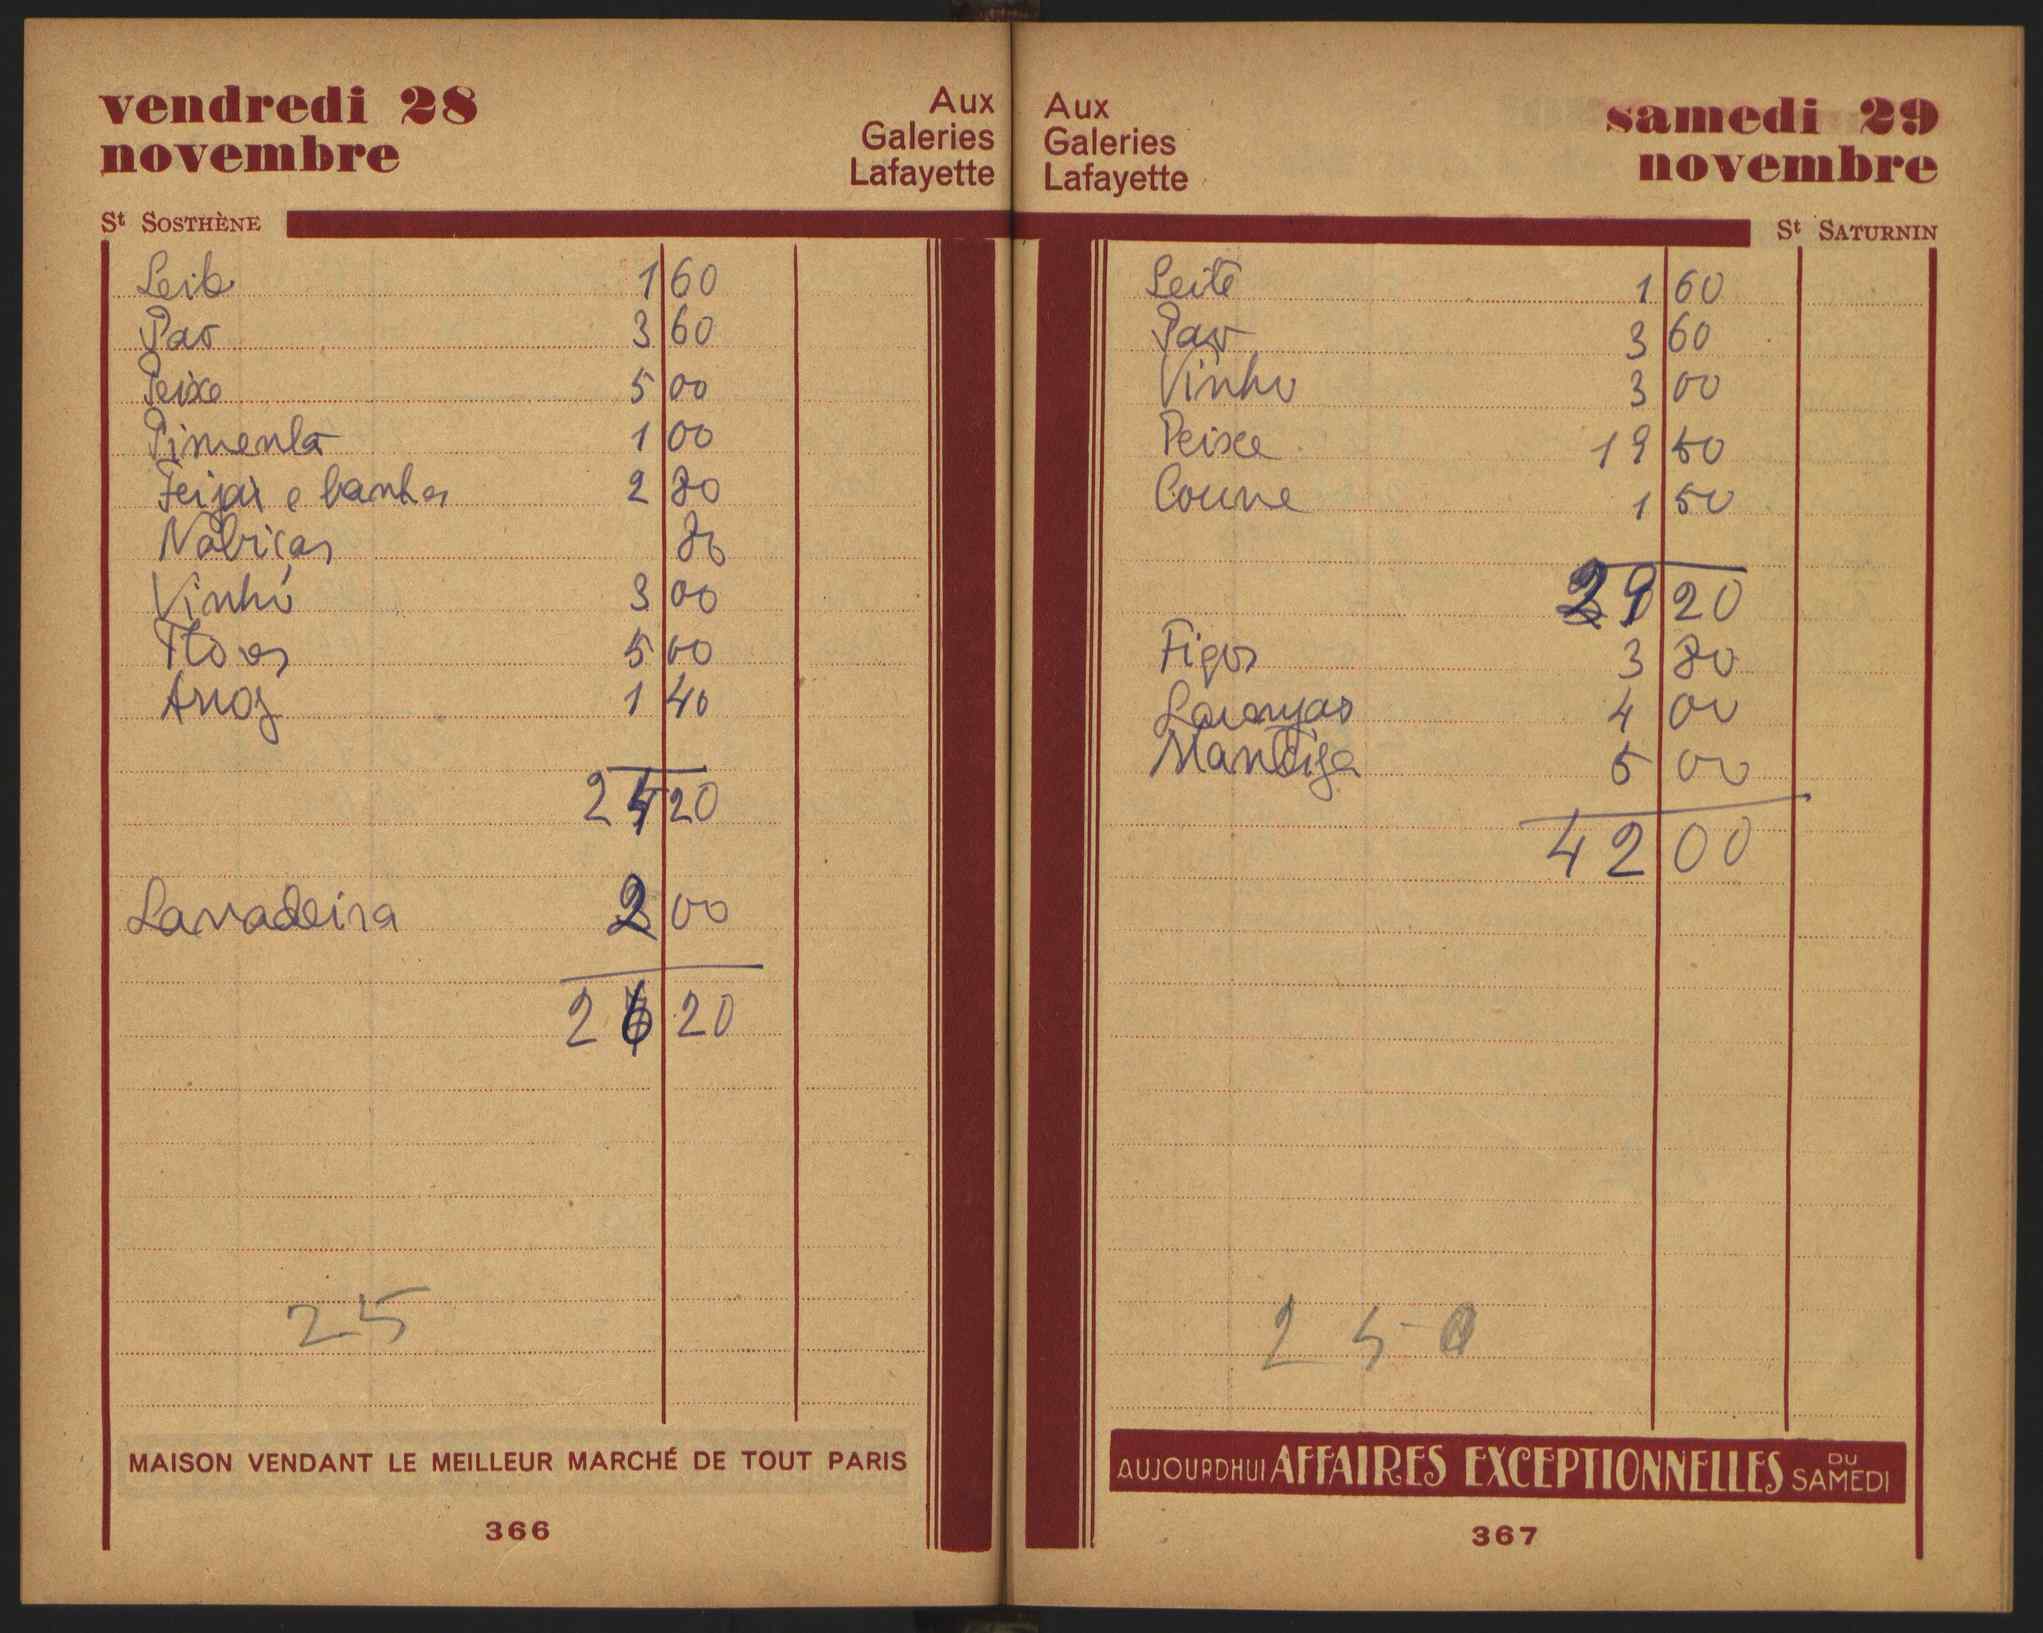 vendredi 28
novembre
Aux
Galeries
Lafayette
St SOSTHÈNE
Leite 1 60
Pao 3 60
Peixe 5 00
Pimenta 1 00
Feijão e banha 2 80
Nabiças 80
Vinho 3 00
5 00
Arroz 1 40
24 20
Lavadeira 2 00
26 20
25
MAISON VENDANT LE MEILLEUR MARCHÉ DE TOUT PARIS
366
Aux
Galeries
Lafayette
samedi 29
novembre
St SATURNIN
Leite 1 60
Pao 3 60
Vinho 3 00
Peixe 19 50
Couve 1 50
29 20
Figos 3 80
Laranjas 4 00
Manteiga 5 00
42 00
2 5 0
AUJOURDHUI AFFAIRES EXCEPTIONNELLES DU SAMEDI
367